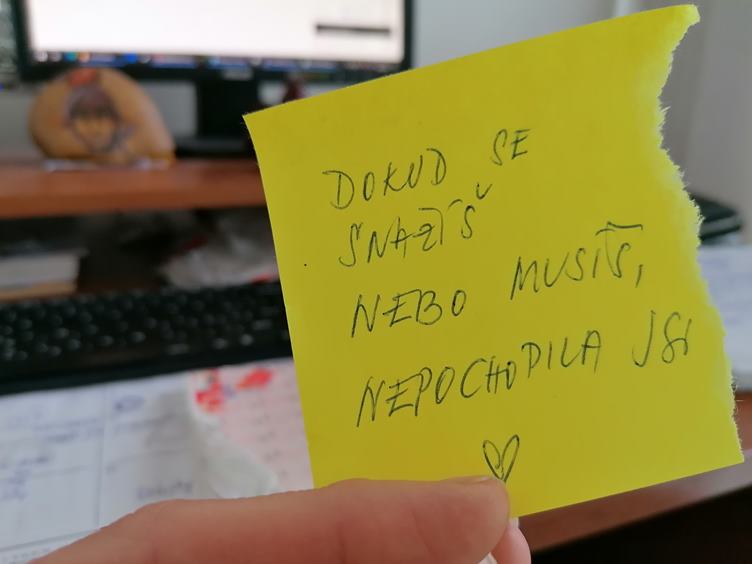 DOKUD SE
SNAZÍŠ
NEBO MUSÍŠ,
NEPOCHOPILA JSI